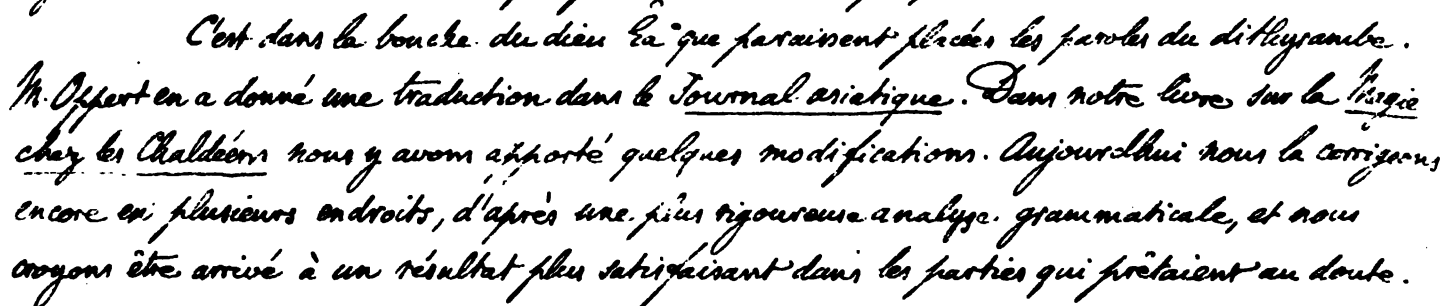 C'est dans la bouche du dieu Êa que paraissent placées les paroles du dithyrambe.
M. Oppert en a donné une traduction dans le Journal asiatique. Dans notre livre sur la Magie
chez les Chaldéens nous y avons apporté quelques modifications. Aujourdhui nous la corrigeons
encore en plusieurs endroits, d'après une plus rigoureuse analyse grammaticale, et nous
croyons être arrivé à un résultat plus satisfaisant dans les parties qui prêtaient au doute.